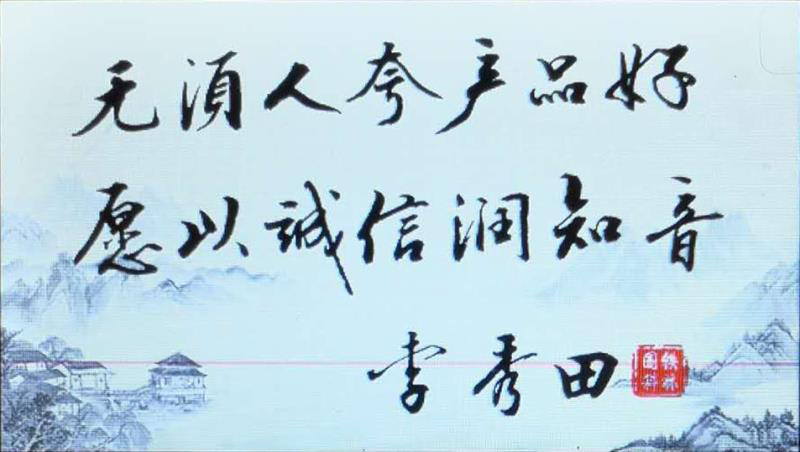 无须人夸产品好
愿以誠信润知音
李秀田